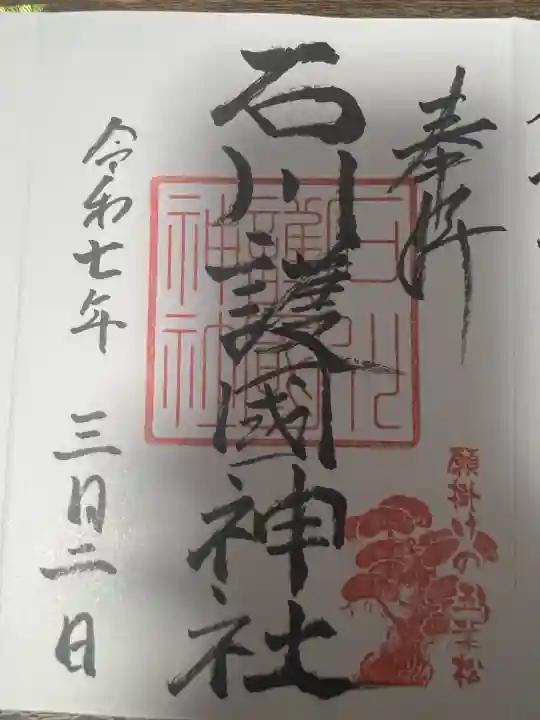 奉拝
石川護國神社
石川
護國
神社
願掛けの五葉松
令和七年 三月二日